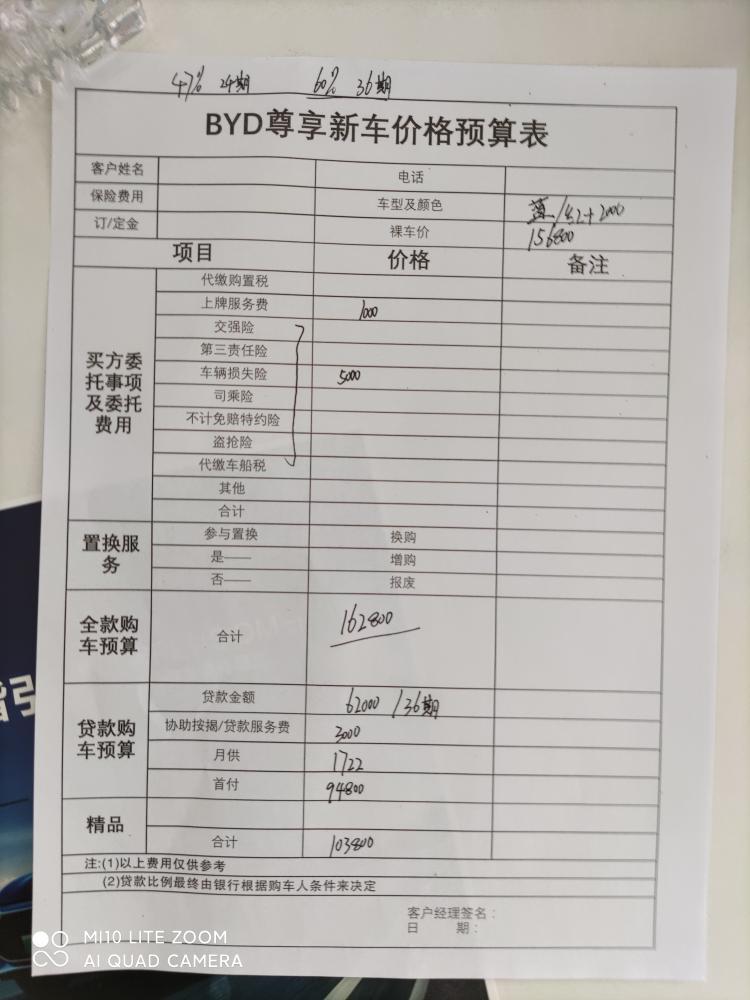 47% 24期 60% 36期
BYD尊享新车价格预算表
客户姓名 电话
保险费用 车型及颜色 /4.2+2000
订/定金 裸车价 156800
项目 价格 备注
代缴购置税
上牌服务费 1000
交强险
第三责任险
买方委托事项及委托费用 车辆损失险 5000
司乘险
不计免赔特约险
盗抢险
代缴车船税
其他
合计
置换服务 参与置换 换购
是—— 增购
否—— 报废
全款购车预算 合计 162800
贷款金额 62000 /36期
贷款购车预算 协助按揭/贷款服务费 3000
月供 1722
首付 94800
精品
合计 103800
注:(1)以上费用仅供参考
(2)贷款比例最终由银行根据购车人条件来决定
客户经理签名:
日 期:
指引
MI10 LITE ZOOM
AI QUAD CAMERA